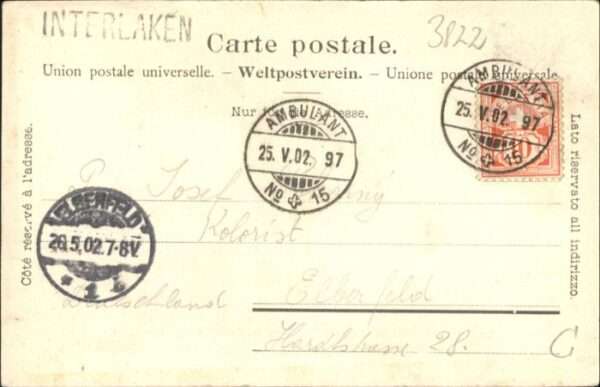 INTERLAKEN
3822
Carte postale.
Union postale universelle. – Weltpostverein. – Unione postale universale
Nur für die Adresse.
AMBULANT
25.V.02. 97
No 15
AMBULANT
25.V.02. 97
No 15
10
Côté réservé à l'adresse.
Lato riservato all indirizzo.
Josef
Kolorist
ELBERFELD
26.5.02.7-8V.
* 1
Deutschland
Elberfeld
Hardtstrasse 28.
C